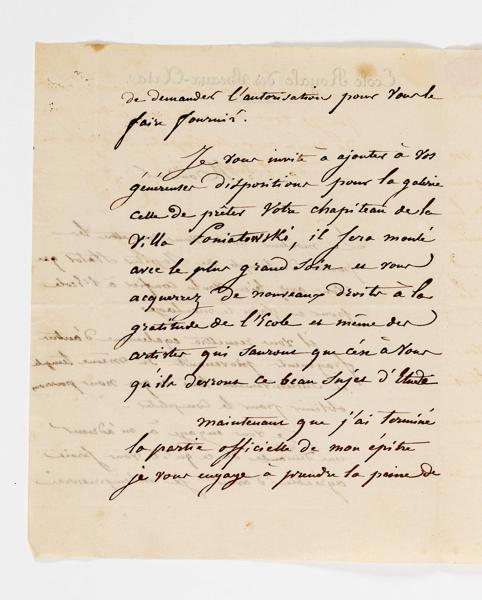 de demander l'autorisation pour vous le
faire fournir.
Je vous invite à ajouter à vos
généreuses dispositions pour la galerie
celle de prêter votre chapiteau de la
Villa Poniatowski, il sera moulé
avec le plus grand soin et vous
acquerrez de nouveaux droits à la
gratitude de l'Ecole et même des
artistes qui sauront que c'est à vous
qu'ils devront ce beau sujet d'Etude
maintenant que j'ai terminé
la partie officielle de mon épitre
je vous engage à prendre la peine de